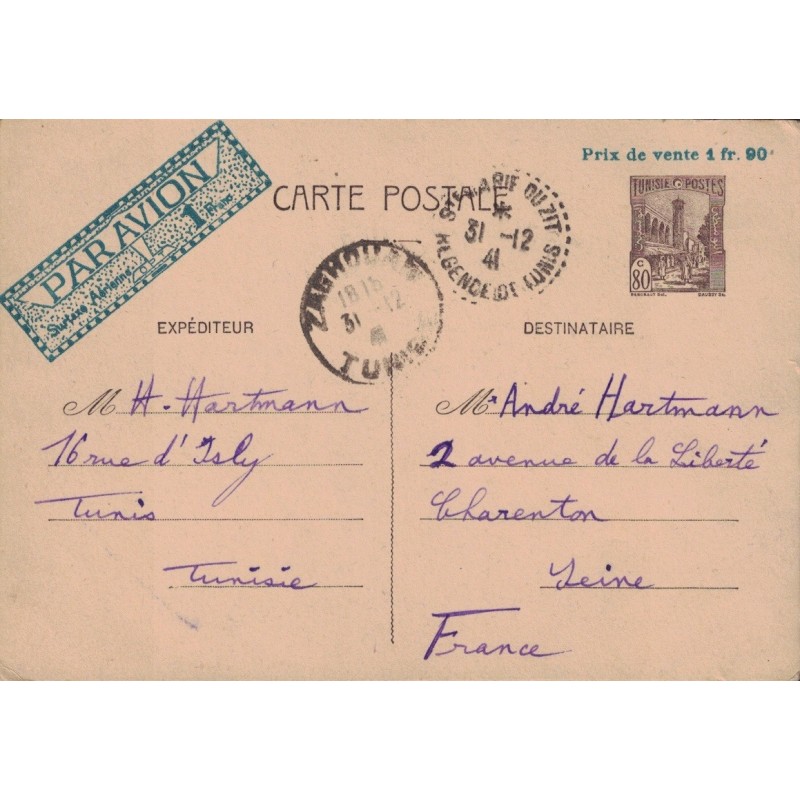 Prix de vente 1 fr. 90
PAR AVION
1 Franc
Surtaxe Aérienne
CARTE POSTALE
STE MARIE DU ZIT
31 -12
41
RÉGENCE DE TUNIS
TUNISIE POSTES
C
80
ZAGHOUAN
18 15
31 12
TUNISIE
EXPÉDITEUR
DESTINATAIRE
M H. Hartmann
16 rue d'Isly
Tunis
Tunisie
Mr André Hartmann
2 avenue de la Liberté
Charenton
Seine
France